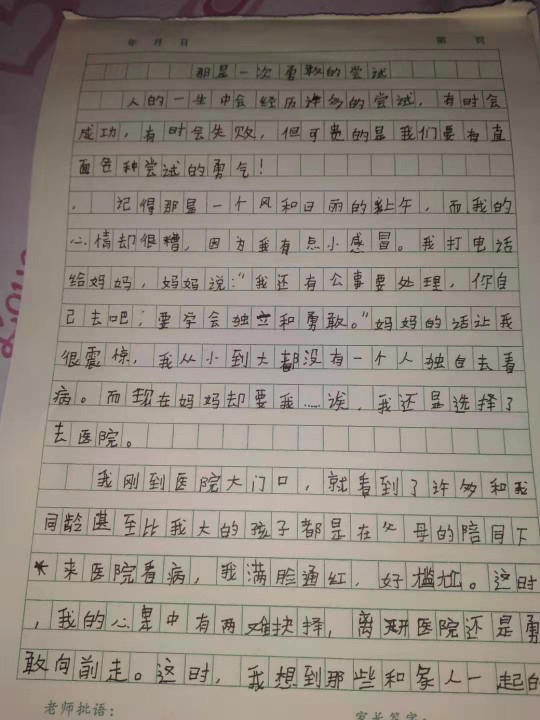 年 月 日 第 页
那是一次勇敢的尝试
人的一生中会经历许多的尝试，有时会
成功，有时会失败，但可贵的是我们要有直
面各种尝试的勇气！
记得那是一个风和日丽的上午，而我的
心情却很糟，因为我有点小感冒。我打电话
给妈妈，妈妈说：“我还有公事要处理，你自
己去吧；要学会独立和勇敢。”妈妈的话让我
很震惊，我从小到大都没有一个人独自去看
病。而现在妈妈却要我……诶，我还是选择了
去医院。
我刚到医院大门口，就看到了许多和我
同龄甚至比我大的孩子都是在父母的陪同下
来医院看病，我满脸通红，好尴尬。这时
，我的心里中有两难抉择，离开医院还是勇
敢向前走。这时，我想到那些和家人一起的
老师批语： 家长签字：